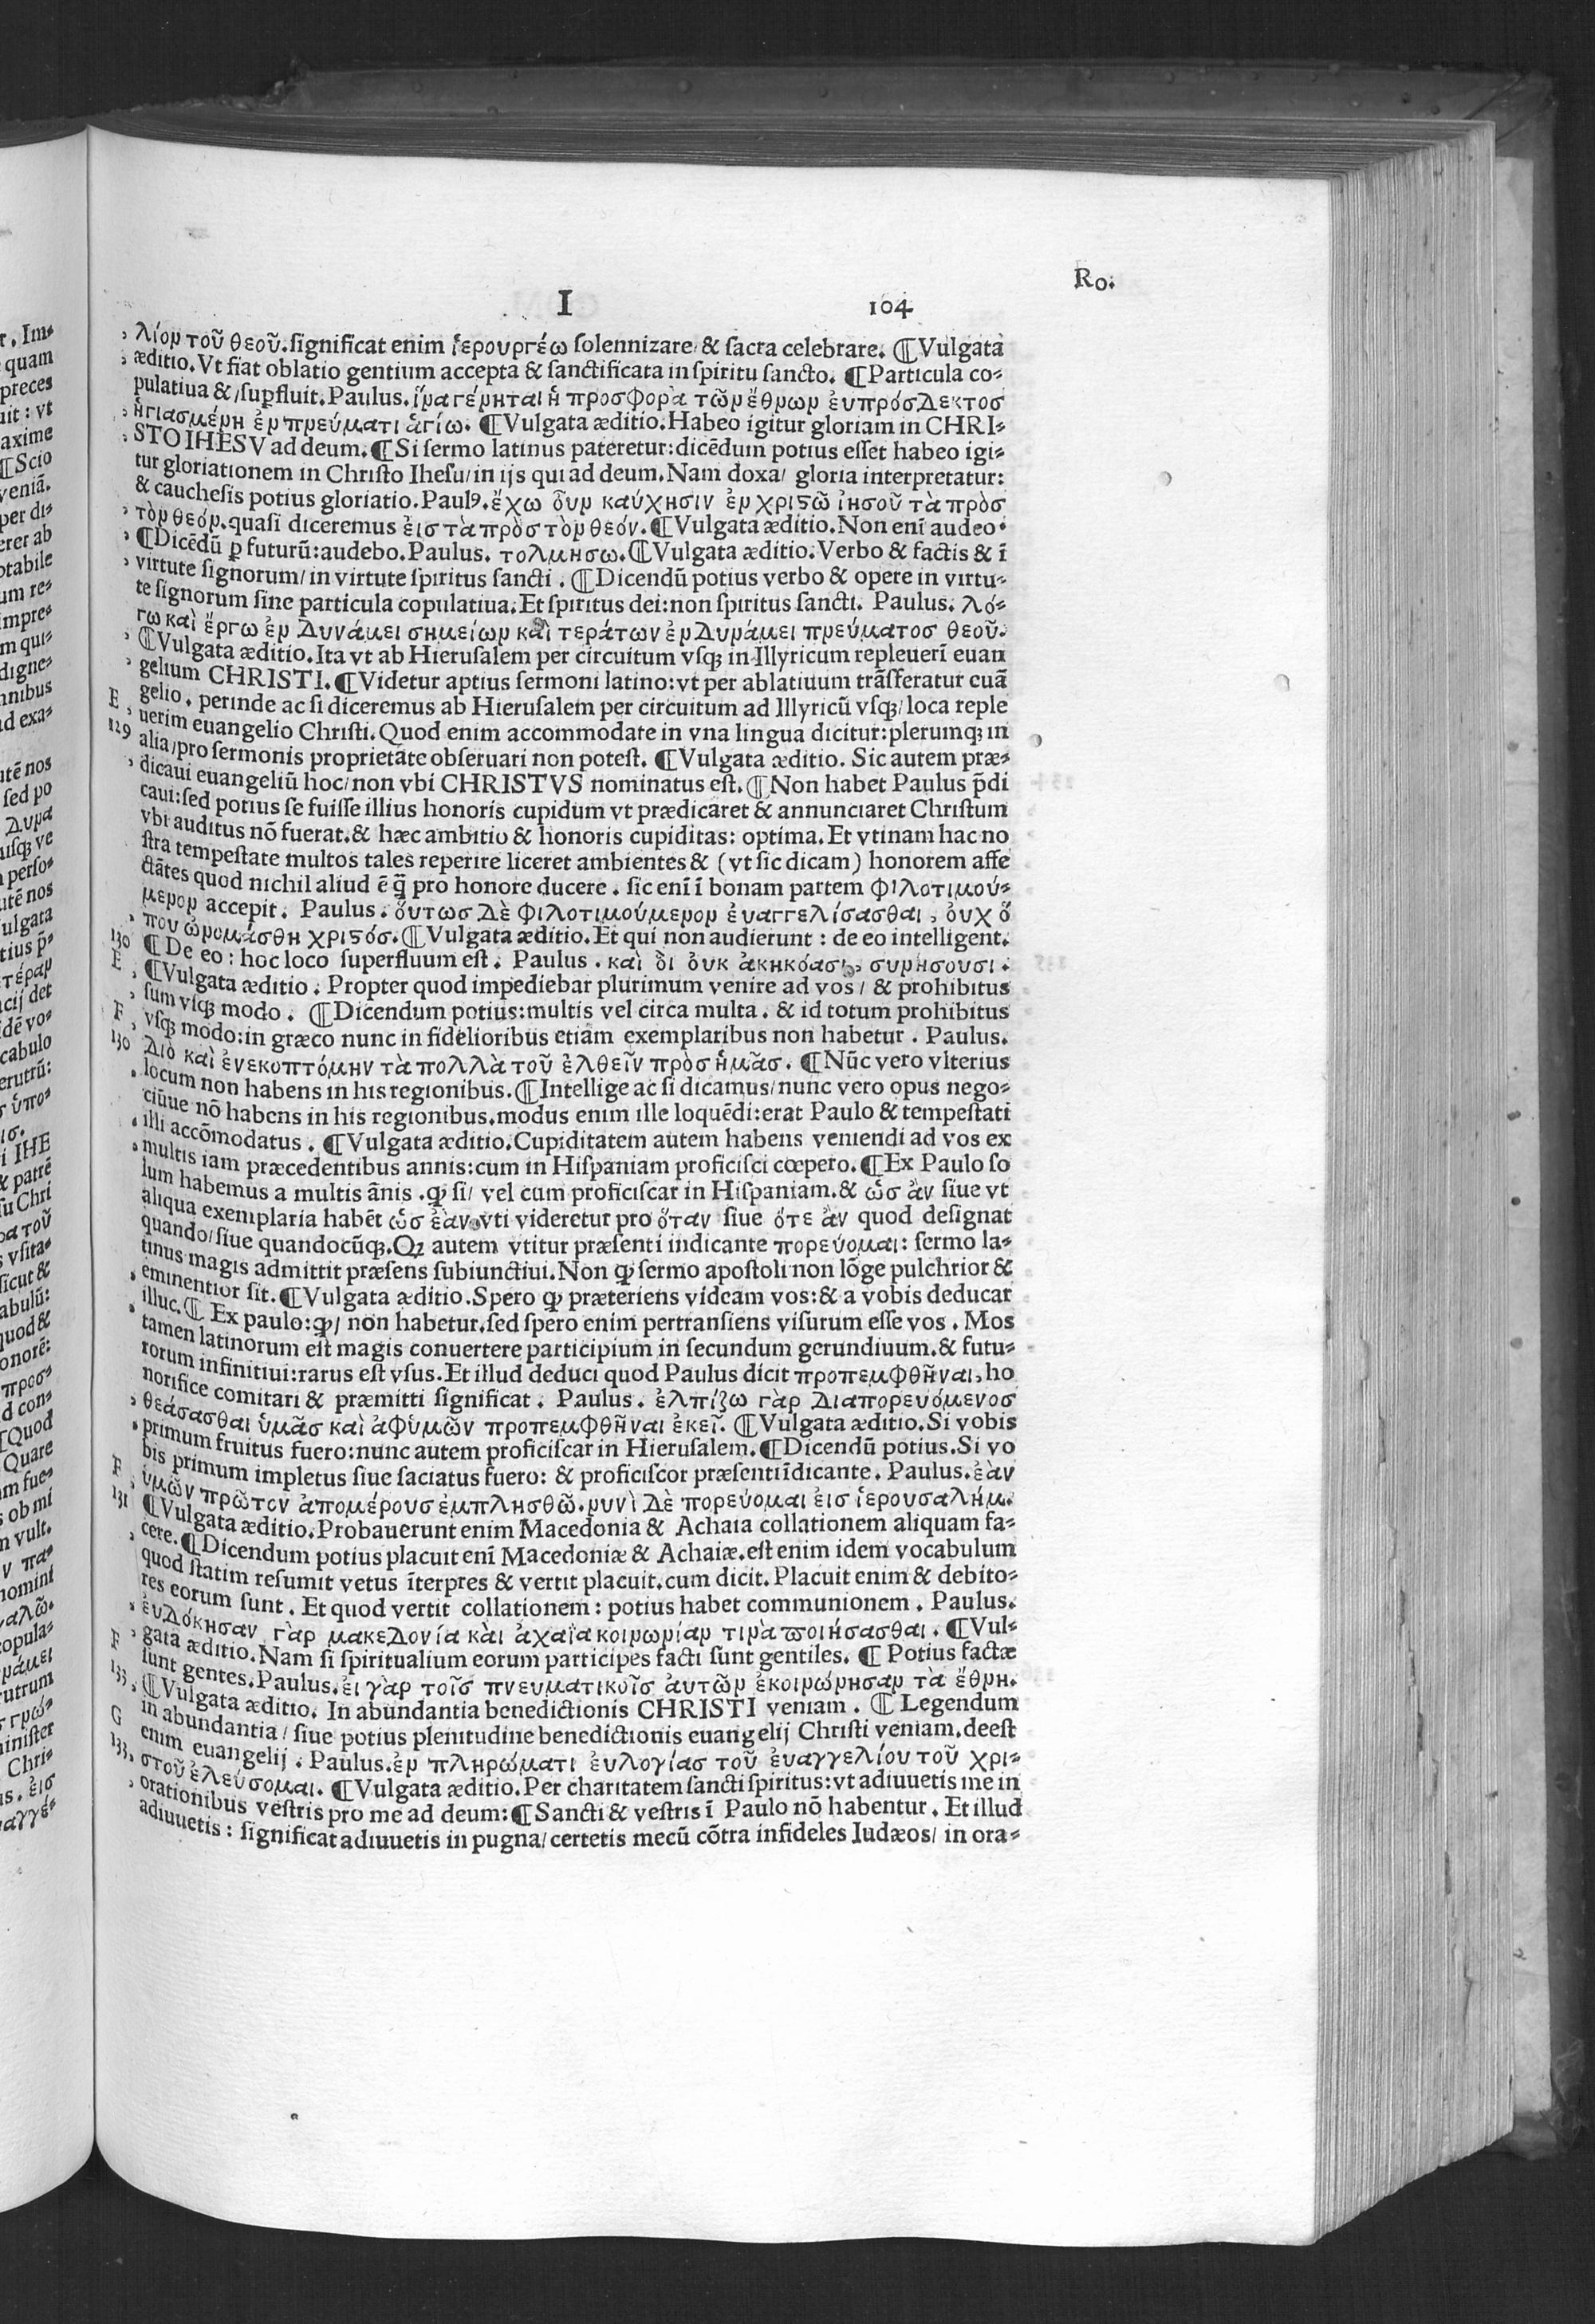 I
104
Ro.
λίον τοῦ θεοῦ.significat enim ἱερουργέω solennizare/ & sacra celebrare. ¶Vulgata
æditio.Vt fiat oblatio gentium accepta & sanctificata in spiritu sancto. ¶Particula co-
pulatiua &/supfluit.Paulus.ἵνα γένηται ἡ προσφορὰ τῶν ἔθνων ἐυπρόσδεκτοσ
ἡγιασμένη ἐν πνεύματι ἁγίω. ¶Vulgata æditio.Habeo igitur gloriam in CHRI-
STO IHESV ad deum.¶Si sermo latinus pateretur:dicēdum potius esset habeo igi-
tur gloriationem in Christo Ihesu/in ijs qui ad deum.Nam doxa/ gloria interpretatur:
& cauchesis potius gloriatio.Paulꝰ.ἔχω ὀυν καύχησιν ἐν χριϛῶ ἰησοῦ τὰ πρὸσ
τὸν θεόν.quasi diceremus ἐισ τὰ πρὸσ τὸν θεόν.¶Vulgata æditio.Non enī audeo
¶Dicēdū ꝑ futurū:audebo.Paulus. τολμησω.¶Vulgata æditio.Verbo & factis & ī
virtute signorum/in virtute spiritus sancti. ¶Dicendū potius verbo & opere in virtu-
te signorum sine particula copulatiua.Et spiritus dei:non spiritus sancti. Paulus. λό-
γω καὶ ἔργω ἐν δυνάμει σημείων καὶ τεράτων ἐν δυνάμει πνεύματοσ θεοῦ.
¶Vulgata æditio.Ita vt ab Hierusalem per circuitum vsqꝫ in Illyricum repleuerī euan
gelium CHRISTI.¶Videtur aptius sermoni latino:vt per ablatiuum trāsferatur euā
E gelio. perinde ac si diceremus ab Hierusalem per circuitum ad Illyricū vsqꝫ/loca reple
129 uerim euangelio Christi.Quod enim accommodate in vna lingua dicitur:plerumqꝫ in
alia/pro sermonis proprietate obseruari non potest. ¶Vulgata æditio. Sic autem præ-
dicaui euangeliū hoc/non vbi CHRISTVS nominatus est.¶Non habet Paulus p̄di
caui:sed potius se fuisse illius honoris cupidum vt prædicaret & annunciaret Christum
vbi auditus nō fuerat.& hæc ambitio & honoris cupiditas: optima. Et vtinam hac no
stra tempestate multos tales reperire liceret ambientes & (vt sic dicam) honorem affe
ctātes quod nichil aliud ē q̄ pro honore ducere. sic enī ī bonam partem φιλοτιμού-
μενον accepit. Paulus. ὅυτωσ δὲ φιλοτιμούμενον ἐυαγγελίσασθαι, ὀυχ ὅ
που ὠνομάσθη χριϛόσ.¶Vulgata æditio.Et qui non audierunt : de eo intelligent.
130 ¶De eo: hoc loco superfluum est. Paulus . καὶ ὃι ὀυκ ἀκηκόασι, συνήσουσι.
E ¶Vulgata æditio. Propter quod impediebar plurimum venire ad vos/ & prohibitus
sum vsqꝫ modo. ¶Dicendum potius:multis vel circa multa. & id totum prohibitus
F vsqꝫ modo:in græco nunc in fidelioribus etiam exemplaribus non habetur. Paulus.
130 Διὸ καὶ ἐνεκοπτόμην τὰ πολλὰ τοῦ ἐλθεῖν πρὸσ ἡμᾶσ. ¶Nūc vero vlterius
locum non habens in his regionibus.¶Intellige ac si dicamus/nunc vero opus nego-
ciūue nō habens in his regionibus.modus enim ille loquēdi:erat Paulo & tempestati
illi accōmodatus. ¶Vulgata æditio.Cupiditatem autem habens veniendi ad vos ex
multis iam præcedentibus annis:cum in Hispaniam proficisci cœpero.¶Ex Paulo so
lum habemus a multis ānis .ꝙ si/ vel cum proficiscar in Hispaniam.& ὡσ ἂν siue vt
aliqua exemplaria habēt ὡσ ἐὰν vti videretur pro ὅταν siue ὅτε ἂν quod designat
quando/siue quandocūqꝫ.Qꝫ autem vtitur præsenti indicante πορεύομαι: sermo la-
tinus magis admittit præsens subiunctiui.Non ꝙ sermo apostoli non lōge pulchrior &
eminentior sit.¶Vulgata æditio.Spero ꝙ præteriens videam vos:& a vobis deducar
illuc.¶ Ex paulo:ꝙ/ non habetur.sed spero enim pertransiens visurum esse vos. Mos
tamen latinorum est magis conuertere participium in secundum gerundiuum.& futu-
rorum infinitiui:rarus est vsus.Et illud deduci quod Paulus dicit προπεμφθῆναι, ho
norifice comitari & præmitti significat. Paulus. ἐλπίζω γὰρ διαπορευόμενοσ
θεάσασθαι ὑμᾶσ καὶ ἀφ᾽ὑμῶν προπεμφθῆναι ἐκεῖ. ¶Vulgata æditio.Si vobis
primum fruitus fuero:nunc autem proficiscar in Hierusalem.¶Dicendū potius.Si vo
bis primum impletus siue saciatus fuero: & proficiscor præsenti īdicante. Paulus.ἐὰν
F ὑμῶν πρῶτον ἀπομέρουσ ἐμπλησθῶ.νυνὶ δὲ πορεύομαι ἐισ ἱερουσαλήμ.
131 ¶Vulgata æditio.Probauerunt enim Macedonia & Achaia collationem aliquam fa-
cere.¶Dicendum potius placuit enī Macedoniæ & Achaiæ.est enim idem vocabulum
quod statim resumit vetus īterpres & vertit placuit.cum dicit.Placuit enim & debito-
res eorum sunt. Et quod vertit collationem: potius habet communionem. Paulus.
ἐυδόκησαν γὰρ μακεδονία κὰι ἀχαΐα κοινωνίαν τινὰ ϖοιήσασθαι. ¶Vul-
F gata æditio.Nam si spiritualium eorum participes facti sunt gentiles. ¶ Potius factæ
sunt gentes.Paulus.ἐι γὰρ τοῖσ πνευματικοῖσ ἀυτῶν ἐκοινώνησαν τὰ ἔθνη.
133. ¶Vulgata æditio. In abundantia benedictionis CHRISTI veniam. ¶ Legendum
in abundantia/ siue potius plenitudine benedictionis euangelij Christi veniam.deest
G enim euangelij. Paulus.ἐν πληρώματι ἐυλογίασ τοῦ ἐυαγγελίου τοῦ χρι-
133. στοῦ ἐλεύσομαι. ¶Vulgata æditio.Per charitatem sancti spiritus:vt adiuuetis me in
orationibus vestris pro me ad deum:¶Sancti & vestris ī Paulo nō habentur. Et illud
adiuuetis: significat adiuuetis in pugna/certetis mecū cōtra infideles Iudæos/ in ora-